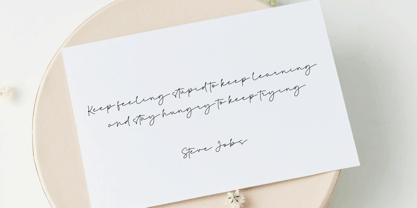 Keep feeling stupid to keep learning
and stay hungry to keep trying
Steve Jobs